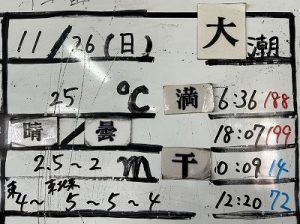 11/26(日) 大潮
25 ℃ 満 6:36 188
晴/曇 18:07 199
2.5～2 m 干 0:09 14
東 東北東
4～5～5～4 12:20 72